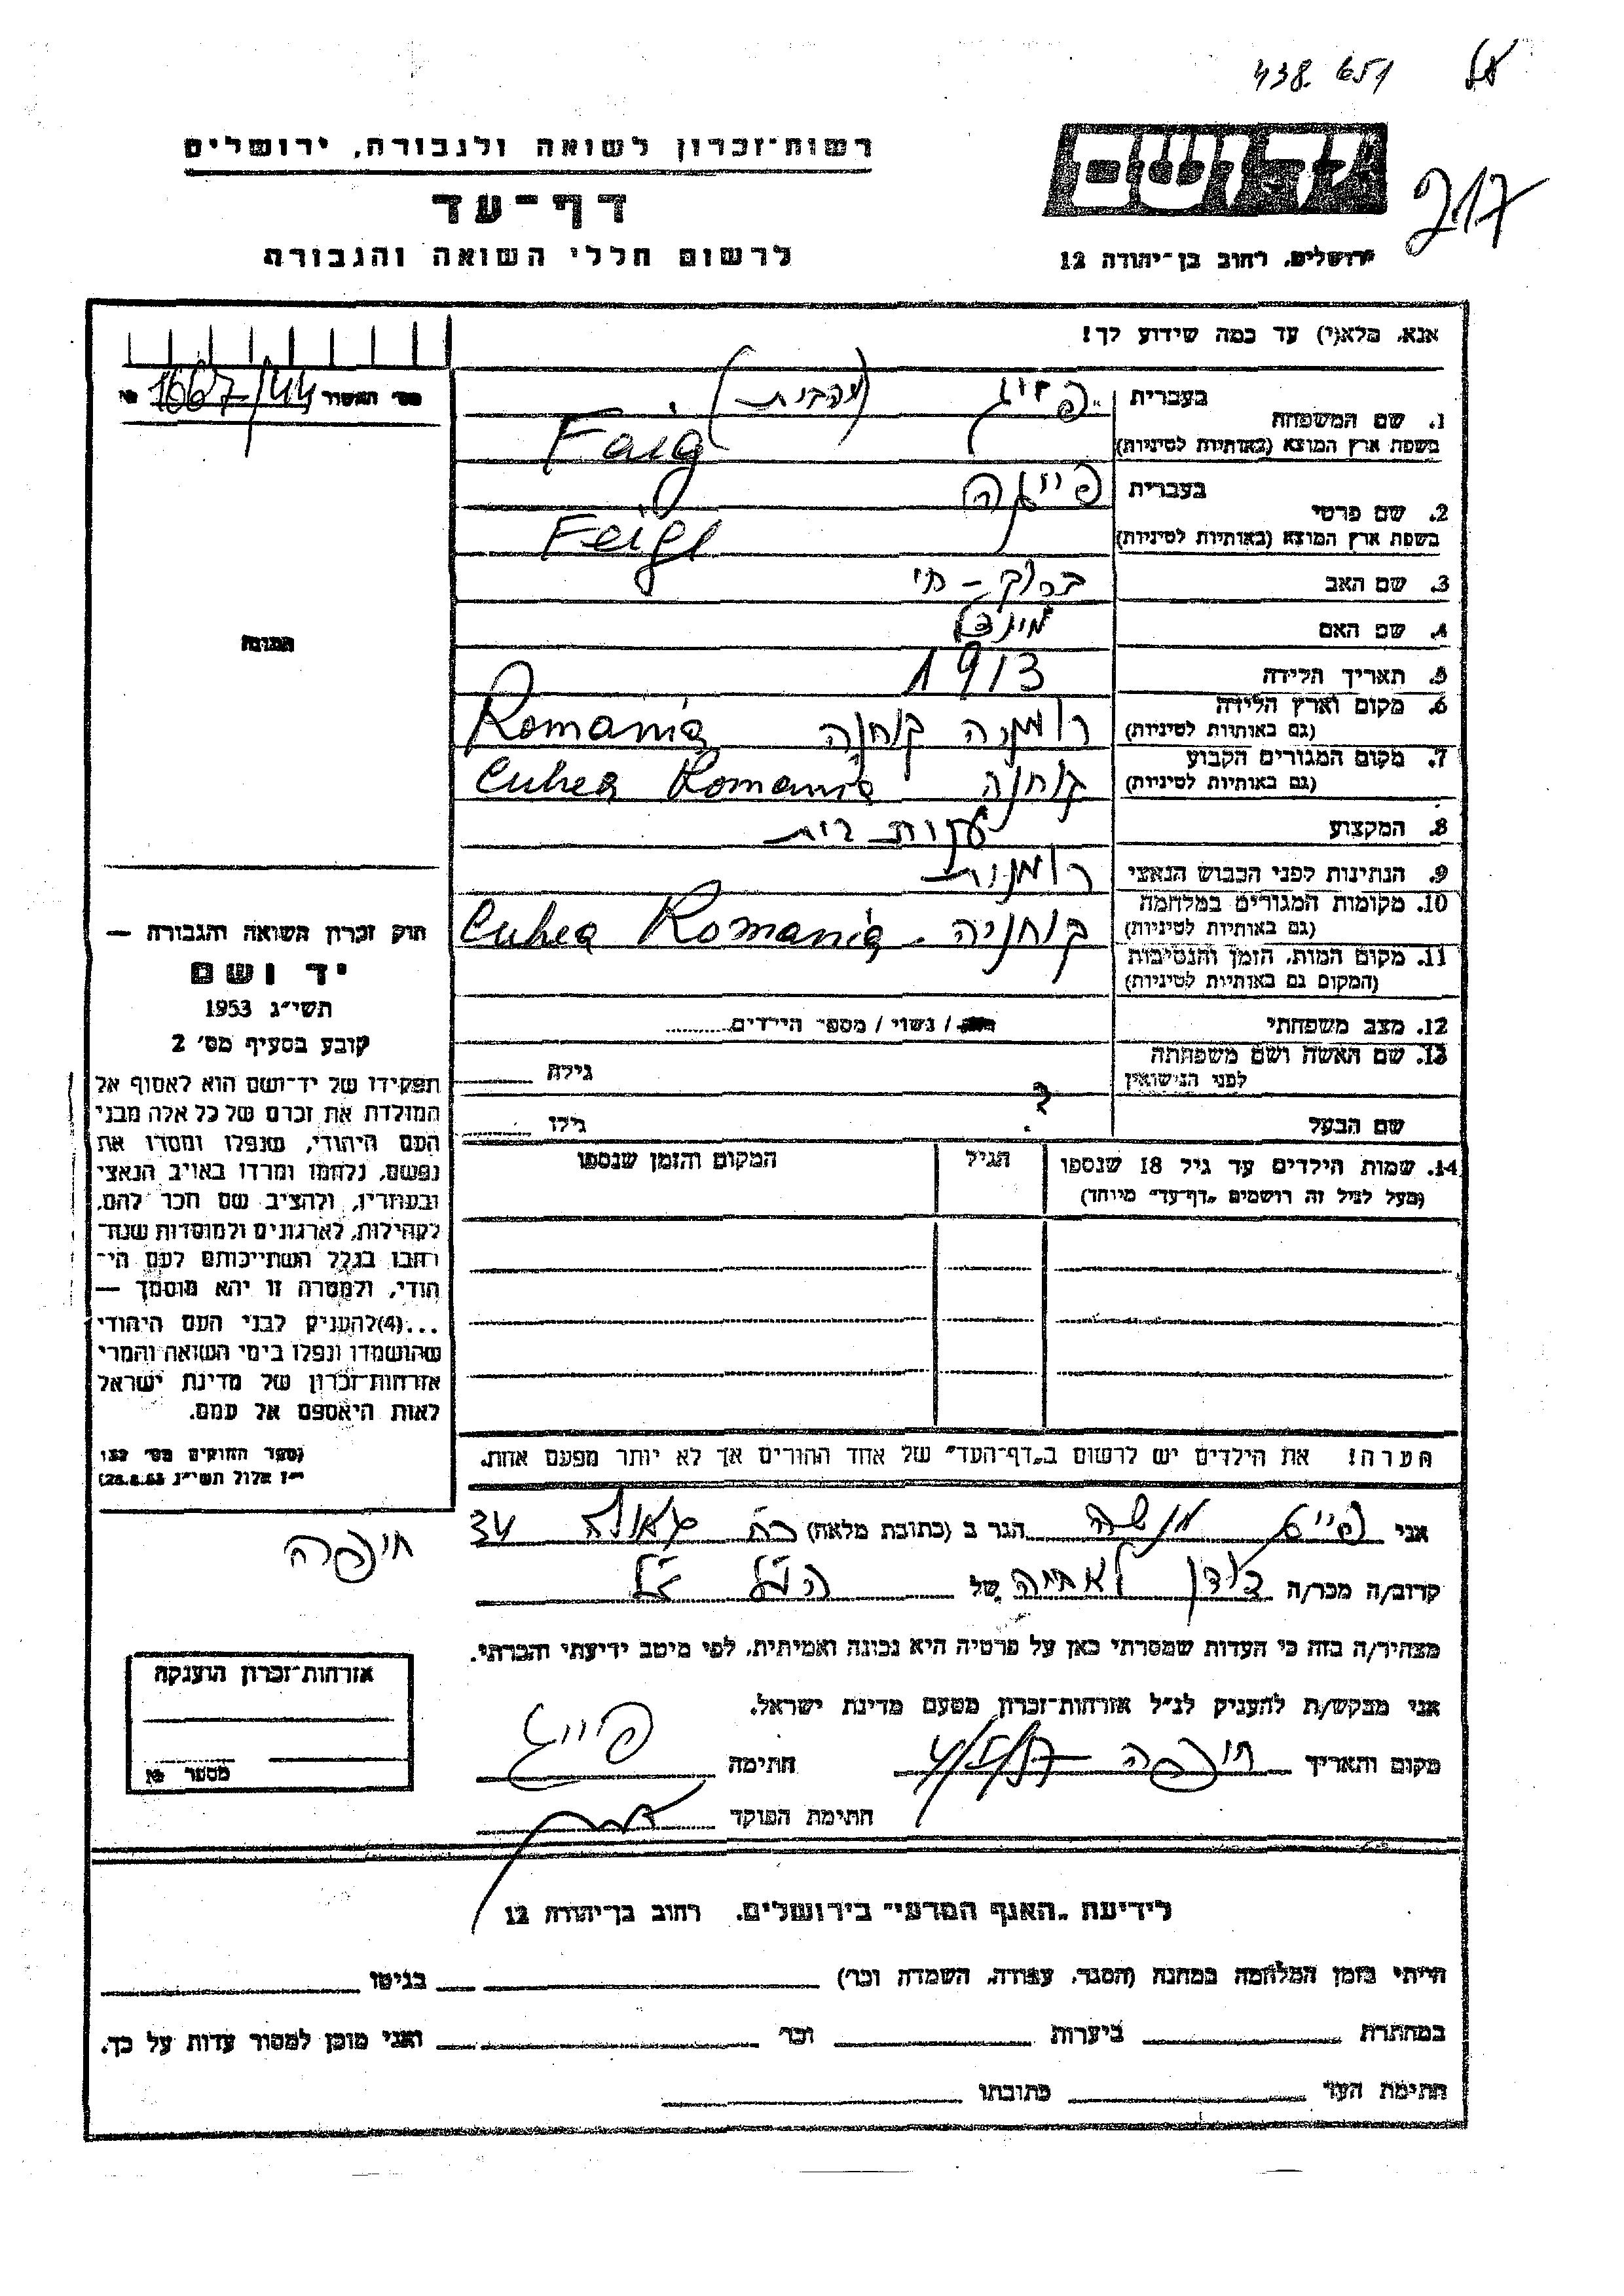 438. 651
217
רשות־זכרון לשואה ולגבורה, ירושלים
דף־עד
לרשום חללי השואה והגבורה
יד ושם
ירושלים, רחוב בן־יהודה 12
אנא, מלא(י) עד כמה שידוע לך!
מס' האשור 1667/44 №
1. שם המשפחה
בעברית פייג
בשפת ארץ המוצא (באותיות לטיניות) Faig
2. שם פרטי
בעברית פייגה
בשפת ארץ המוצא (באותיות לטיניות) Feige
3. שם האב ברוך - חי
4. שם האם
5. תאריך הלידה 1913
6. מקום וארץ הלידה
(גם באותיות לטיניות) רומניה קוחנה Romania
7. מקום המגורים הקבוע
(גם באותיות לטיניות) קוחנה Cuhea Romania
8. המקצוע עקרת בית
9. הנתינות לפני הכבוש הנאצי רומנית
10. מקומות המגורים במלחמה
(גם באותיות לטיניות) קוחניה. Cuhea Romania
11. מקום המות, הזמן והנסיבות
(המקום גם באותיות לטיניות)
12. מצב משפחתי / נשוי / מספר הילדים
13. שם האשה ושם משפחתה
לפני הנישואין גילה
שם הבעל ? גילו
14. שמות הילדים עד גיל 18 שנספו הגיל המקום והזמן שנספו
(מעל לגיל זה רושמים „דף־עד" מיוחד)
הערה! את הילדים יש לרשום ב„דף־העד" של אחד ההורים אך לא יותר מפעם אחת.
התמונה
חוק זכרון השואה והגבורה —
יד ושם
תשי"ג 1953
קובע בסעיף מס' 2
תפקידו של יד־ושם הוא לאסוף אל
המולדת את זכרם של כל אלה מבני
העם היהודי, שנפלו ומסרו את
נפשם, נלחמו ומרדו באויב הנאצי
ובעוזריו, ולהציב שם וזכר להם,
לקהילות, לארגונים ולמוסדות שנח־
רבו בגלל השתייכותם לעם הי־
הודי, ולמטרה זו יהא מוסמך —
...(4)להעניק לבני העם היהודי
שהושמדו ונפלו בימי השואה והמרי
אזרחות־זכרון של מדינת ישראל
לאות היאספם אל עמם.
(ספר החוקים מס' 132
י"ז אלול תשי"ג 28.8.53)
אני פייג מנשה הגר ב (כתובת מלאה) רח גאולה 34
חיפה
קרוב/ה מכר/ה של הנ"ל
מצהיר/ה בזה כי העדות שמסרתי כאן על פרטיה היא נכונה ואמיתית, לפי מיטב ידיעתי והכרתי.
אני מבקש/ת להעניק לנ"ל אזרחות־זכרון מטעם מדינת ישראל.
מקום ותאריך חיפה חתימה פייג
חתימת הפוקד
אזרחות־זכרון הוענקה
מספר №
לידיעת „האגף המדעי" בירושלים, רחוב בן־יהודה 12
הייתי בזמן המלחמה במחנה (הסגר, עבודה, השמדה וכו') בגיטו
במחתרת ביערות וכו' ואני מוכן למסור עדות על כך.
חתימת העד כתובתו